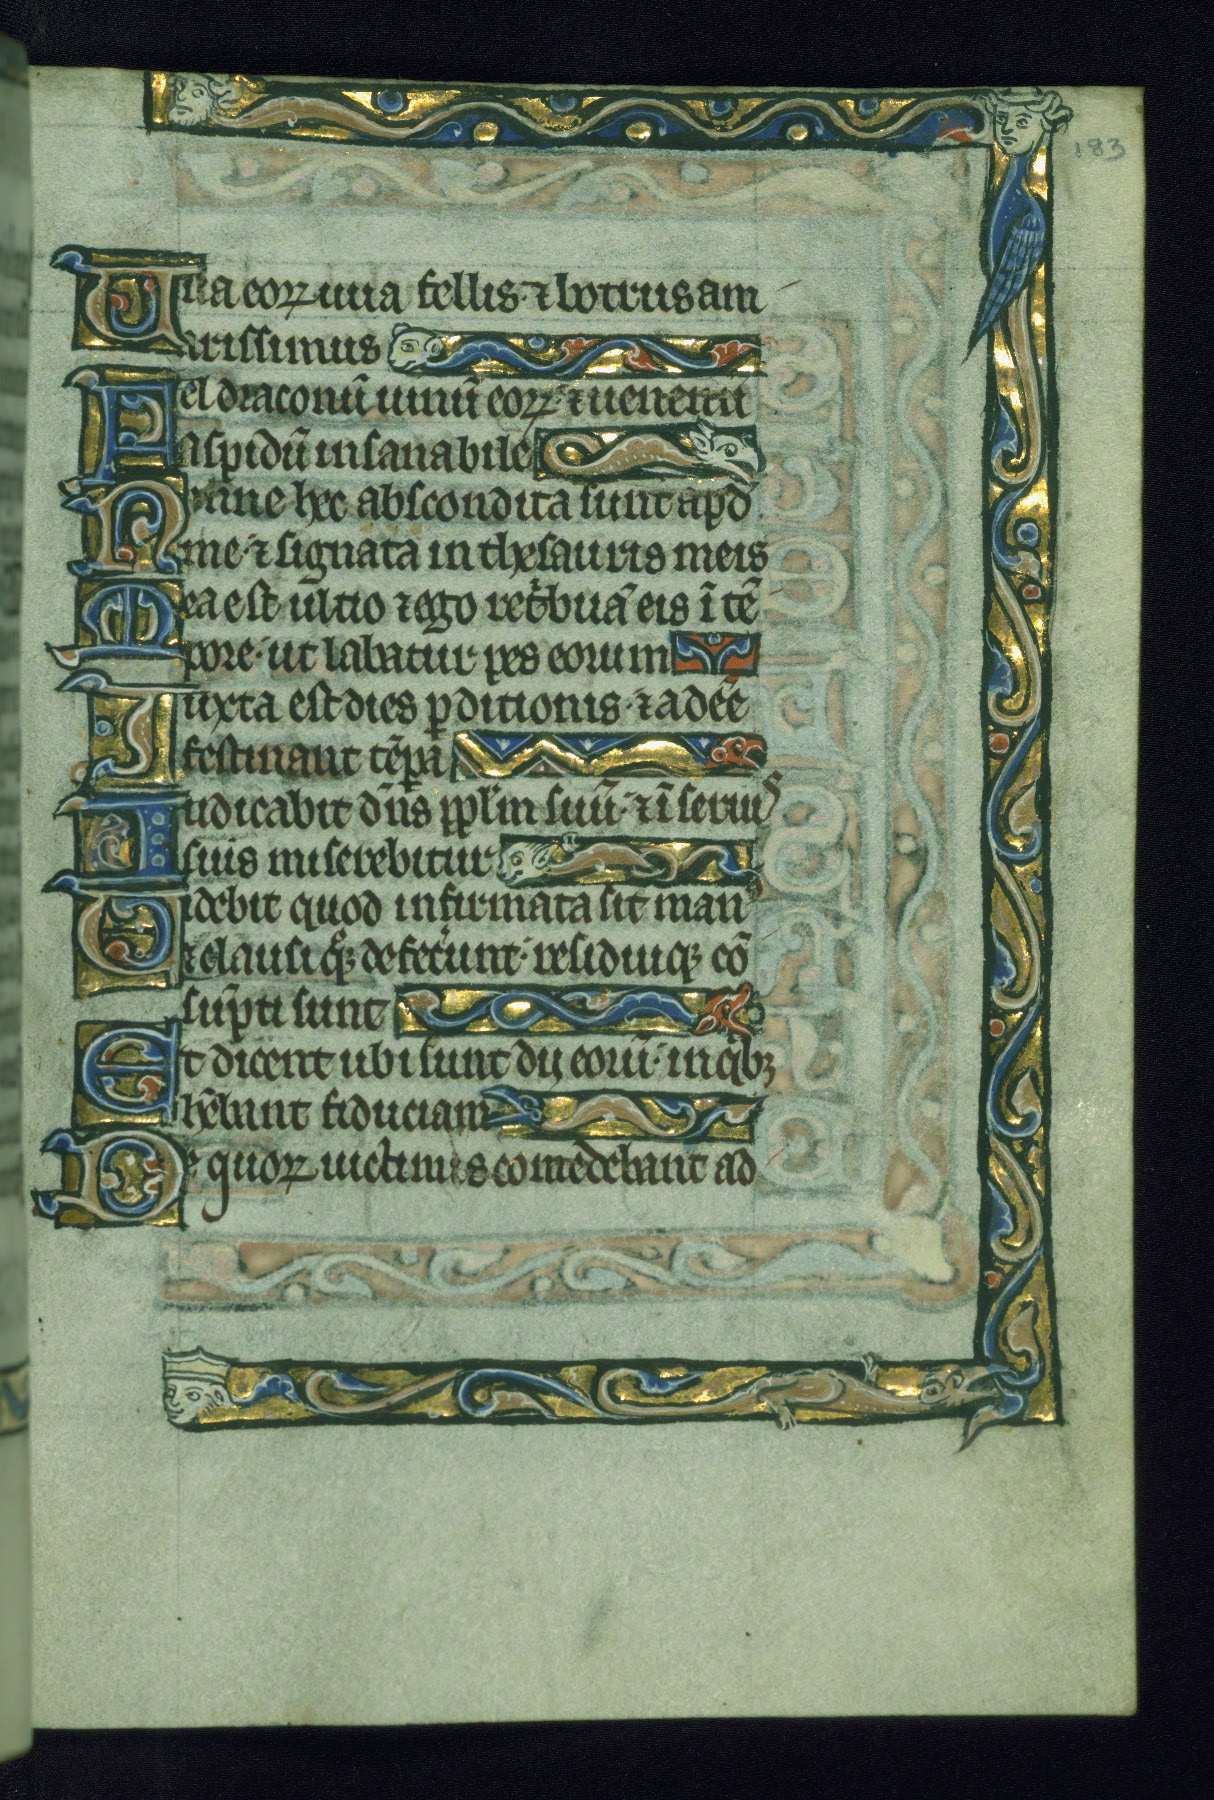 183
Uua eoꝝ uua fellis ⁊ botrus am
arissimus
Fel draconū uinū eoꝝ ⁊ uenenū
aspidū insanabile
Nonne hec abscondita sunt apd
me ⁊ signata in thesauris meis
Mea est ultio ⁊ ego ret'buā eis ī tē
pore ut labatur pes eorum
Iuxta est dies ꝑditionis ⁊ adēē
festinant tēpa
Iudicabit dn̄s ppl'm suū ⁊ ī seruis
suis miserebitur
Uidebit quod infirmata sit man'
⁊ clausi qꝫ defec'unt residuiqꝫ cō
sūpti sunt
Et dicent ubi sunt dij eorū in qͥbꝫ
hēbant fiduciam
De quoꝝ uictimis comedebant ad